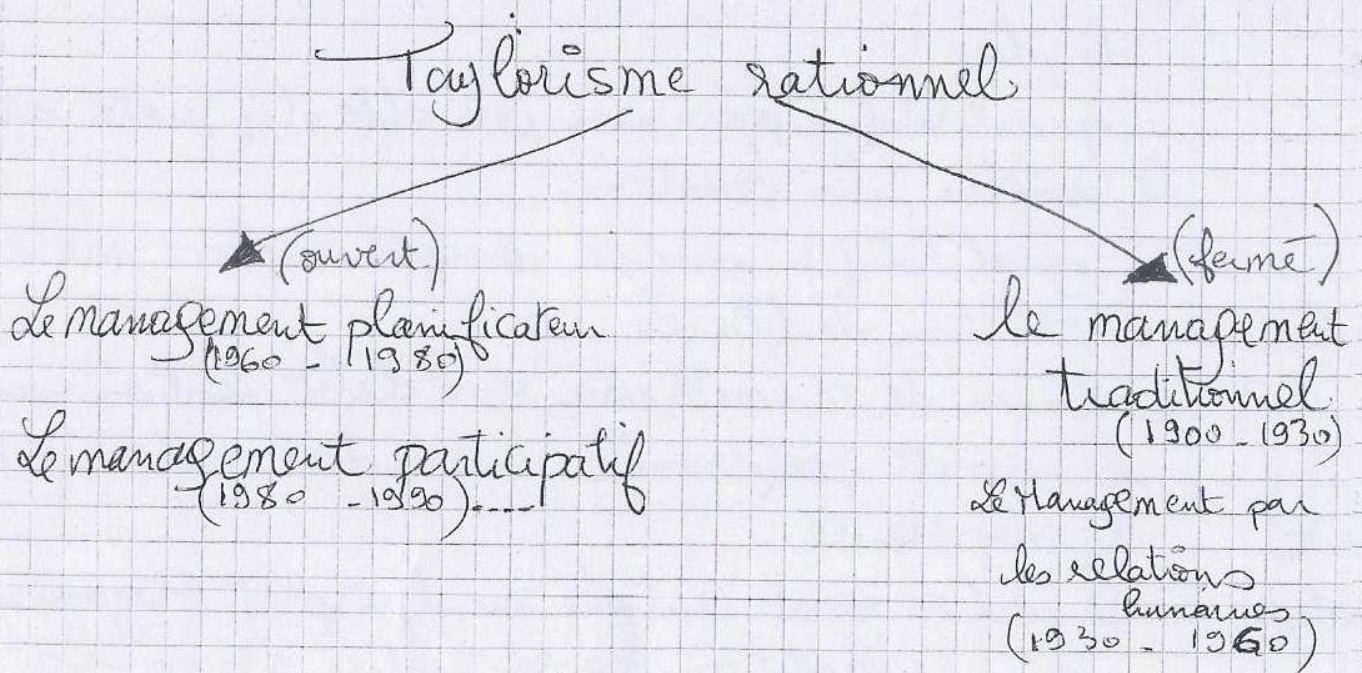 Taylorisme rationnel
(ouvert)
Le management planificateur
(1960 - 1980)
Le management participatif
(1980 - 1990)....
(fermé)
le management
traditionnel
(1900 - 1930)
Le Management par
les relations
humaines
(1930 - 1960)